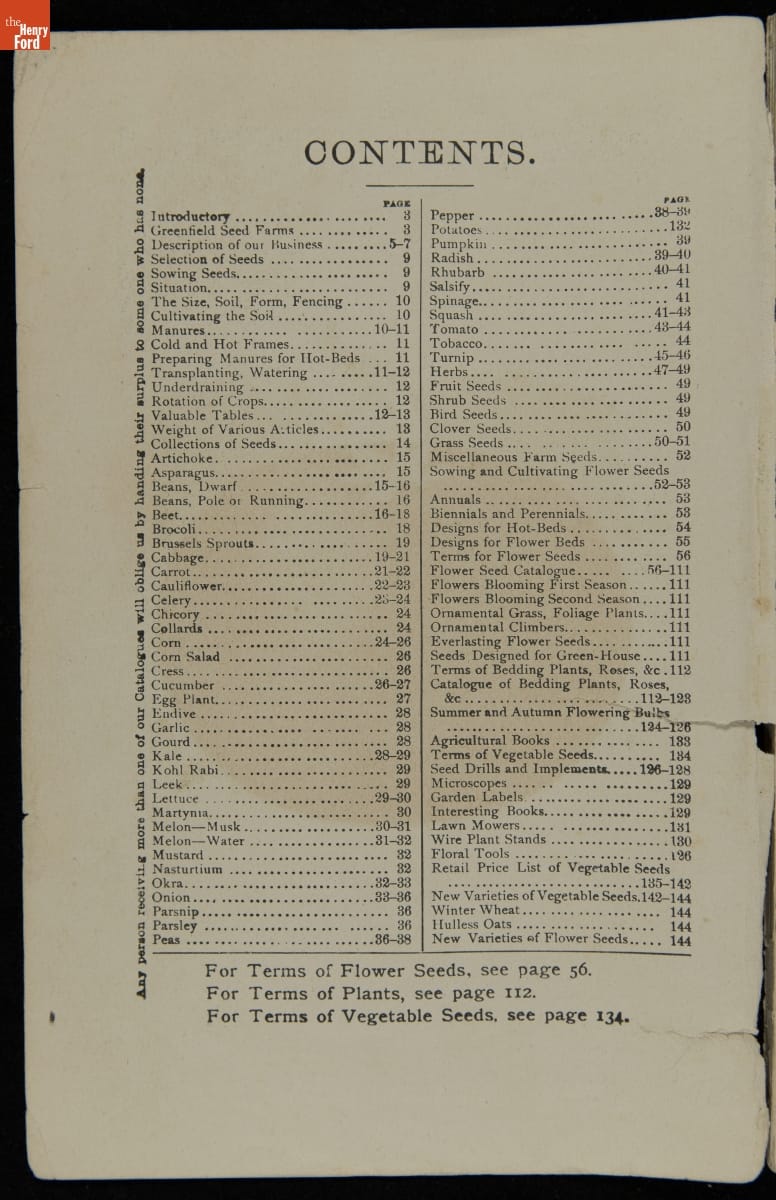 the
Henry
Ford
CONTENTS.
Any person receiving more than one of our Catalogues will oblige us by handing their surplus to some one who has none.
PAGE
Introductory .................... 3
Greenfield Seed Farms .............. 3
Description of our Business ......... 5-7
Selection of Seeds ................. 9
Sowing Seeds..................... 9
Situation......................... 9
The Size, Soil, Form, Fencing ...... 10
Cultivating the Soil ................ 10
Manures..........................10-11
Cold and Hot Frames.............. 11
Preparing Manures for Hot-Beds ... 11
Transplanting, Watering .........11-12
Underdraining .................... 12
Rotation of Crops.................. 12
Valuable Tables...................12-13
Weight of Various Articles.......... 13
Collections of Seeds................ 14
Artichoke......................... 15
Asparagus........................ 15
Beans, Dwarf ....................15-16
Beans, Pole or Running............ 16
Beet.............................16-18
Brocoli........................... 18
Brussels Sprouts................... 19
Cabbage..........................19-21
Carrot...........................21-22
Cauliflower.......................22-23
Celery...........................23-24
Chicory .......................... 24
Collards .......................... 24
Corn ............................24-26
Corn Salad ....................... 26
Cress............................. 26
Cucumber .......................26-27
Egg Plant......................... 27
Endive ........................... 28
Garlic ............................ 28
Gourd ............................ 28
Kale ............................28-29
Kohl Rabi......................... 29
Leek.............................. 29
Lettuce ..........................29-30
Martynia.......................... 30
Melon—Musk.....................30-31
Melon—Water ...................31-32
Mustard .......................... 32
Nasturtium ....................... 32
Okra.............................32-33
Onion............................33-36
Parsnip........................... 36
Parsley ........................... 36
Peas .............................36-38
PAGE
Pepper ..........................38-39
Potatoes...........................132
Pumpkin .......................... 39
Radish...........................39-40
Rhubarb .........................40-41
Salsify............................ 41
Spinage........................... 41
Squash ..........................41-43
Tomato ..........................43-44
Tobacco........................... 44
Turnip ...........................45-46
Herbs............................47-49
Fruit Seeds ....................... 49
Shrub Seeds ...................... 49
Bird Seeds........................ 49
Clover Seeds...................... 50
Grass Seeds ......................50-51
Miscellaneous Farm Seeds.......... 52
Sowing and Cultivating Flower Seeds
.............................52-53
Annuals .......................... 53
Biennials and Perennials............ 53
Designs for Hot-Beds .............. 54
Designs for Flower Beds ........... 55
Terms for Flower Seeds ............ 56
Flower Seed Catalogue...........56-111
Flowers Blooming First Season ......111
Flowers Blooming Second Season ....111
Ornamental Grass, Foliage Plants....111
Ornamental Climbers...............111
Everlasting Flower Seeds............111
Seeds Designed for Green-House....111
Terms of Bedding Plants, Roses, &c .112
Catalogue of Bedding Plants, Roses,
&c ............................112-123
Summer and Autumn Flowering Bulbs
.............................124-126
Agricultural Books ................ 133
Terms of Vegetable Seeds.......... 134
Seed Drills and Implements.....126-128
Microscopes .......................129
Garden Labels.....................129
Interesting Books...................129
Lawn Mowers......................131
Wire Plant Stands .................130
Floral Tools .......................126
Retail Price List of Vegetable Seeds
.............................135-142
New Varieties of Vegetable Seeds.142-144
Winter Wheat..................... 144
Hulless Oats ...................... 144
New Varieties of Flower Seeds..... 144
For Terms of Flower Seeds, see page 56.
For Terms of Plants, see page 112.
For Terms of Vegetable Seeds, see page 134.